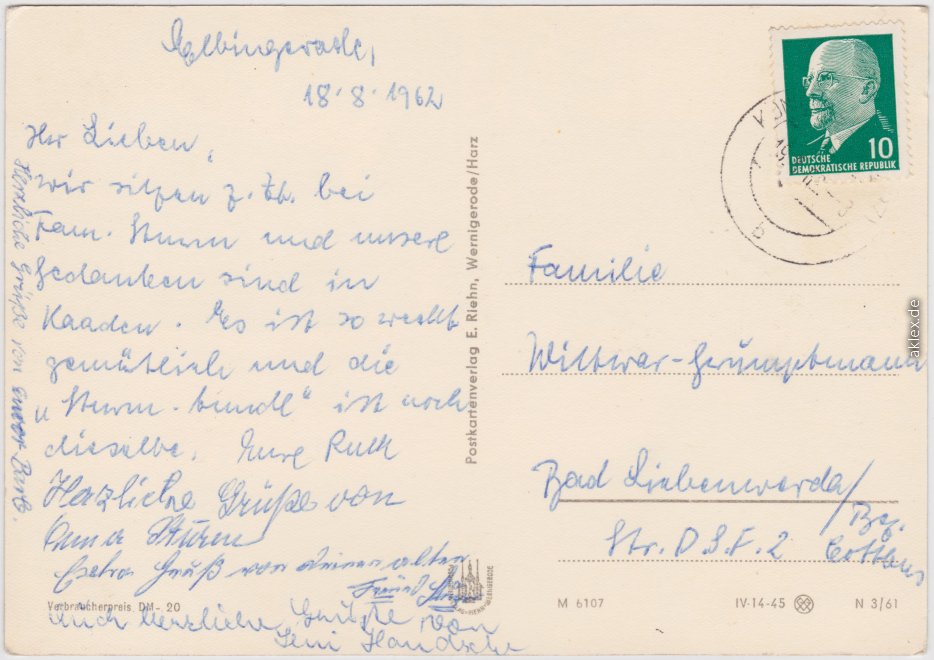 Elbingerode,
18.8.1962
Ihr Lieben,
wir sitzen z. Zt. bei
Fam. Sturm und unsere
Gedanken sind in
Kaaden. Es ist so recht
gemütlich und die
„Sturm-bindl" ist noch
dieselbe. Eure Ruth
Herzliche Grüße von
Anna Sturm
Extra Gruß von deiner alten
Auch herzliche Grüße von
Leni
Herzliche Grüße von
Postkartenverlag E. Riehn, Wernigerode/Harz
Verbraucherpreis DM -.20
DEUTSCHE
DEMOKRATISCHE REPUBLIK
10
Familie
Wittwar-Grumptmann
Bad Liebenwerda/
Bez.
Cottbus
Str. D.S.F. 2
M 6107
IV-14-45
N 3/61
aklex.de